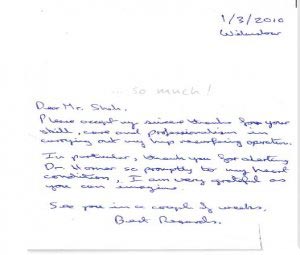 1/3/2010
... so much!
Dear Mr. Shah.
Please accept my sincere thanks for your
skill, care and professionalism in
carrying out my hip resurfacing operation.
In particular, thank you for alerting
Dr. Homer so promptly to my heart
condition, I am very grateful as
you can imagine.
See you in a couple of weeks.
Best Regards.